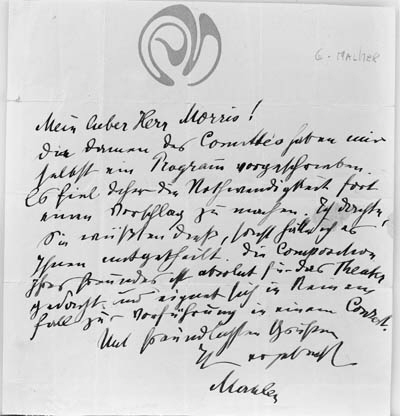 G. MAHLER
Mein lieber Herr Morris!
die Damen des Comittés haben mir
selbst ein Program vorgeschrieben.
Es fiel daher die Nothwendigkeit fort
einen Vorschlag zu machen. Ich dachte,
Sie wüßten dieß, sonst hätte ich es
Ihnen mitgetheilt. Die Composition
Ihres Freundes ist absolut für das Theater
gedacht und eignet sich in keinem
Fall zur Vorführung in einem Concert.
Mit freundlichsten Grüßen
Ihr ergebenster
Mahler